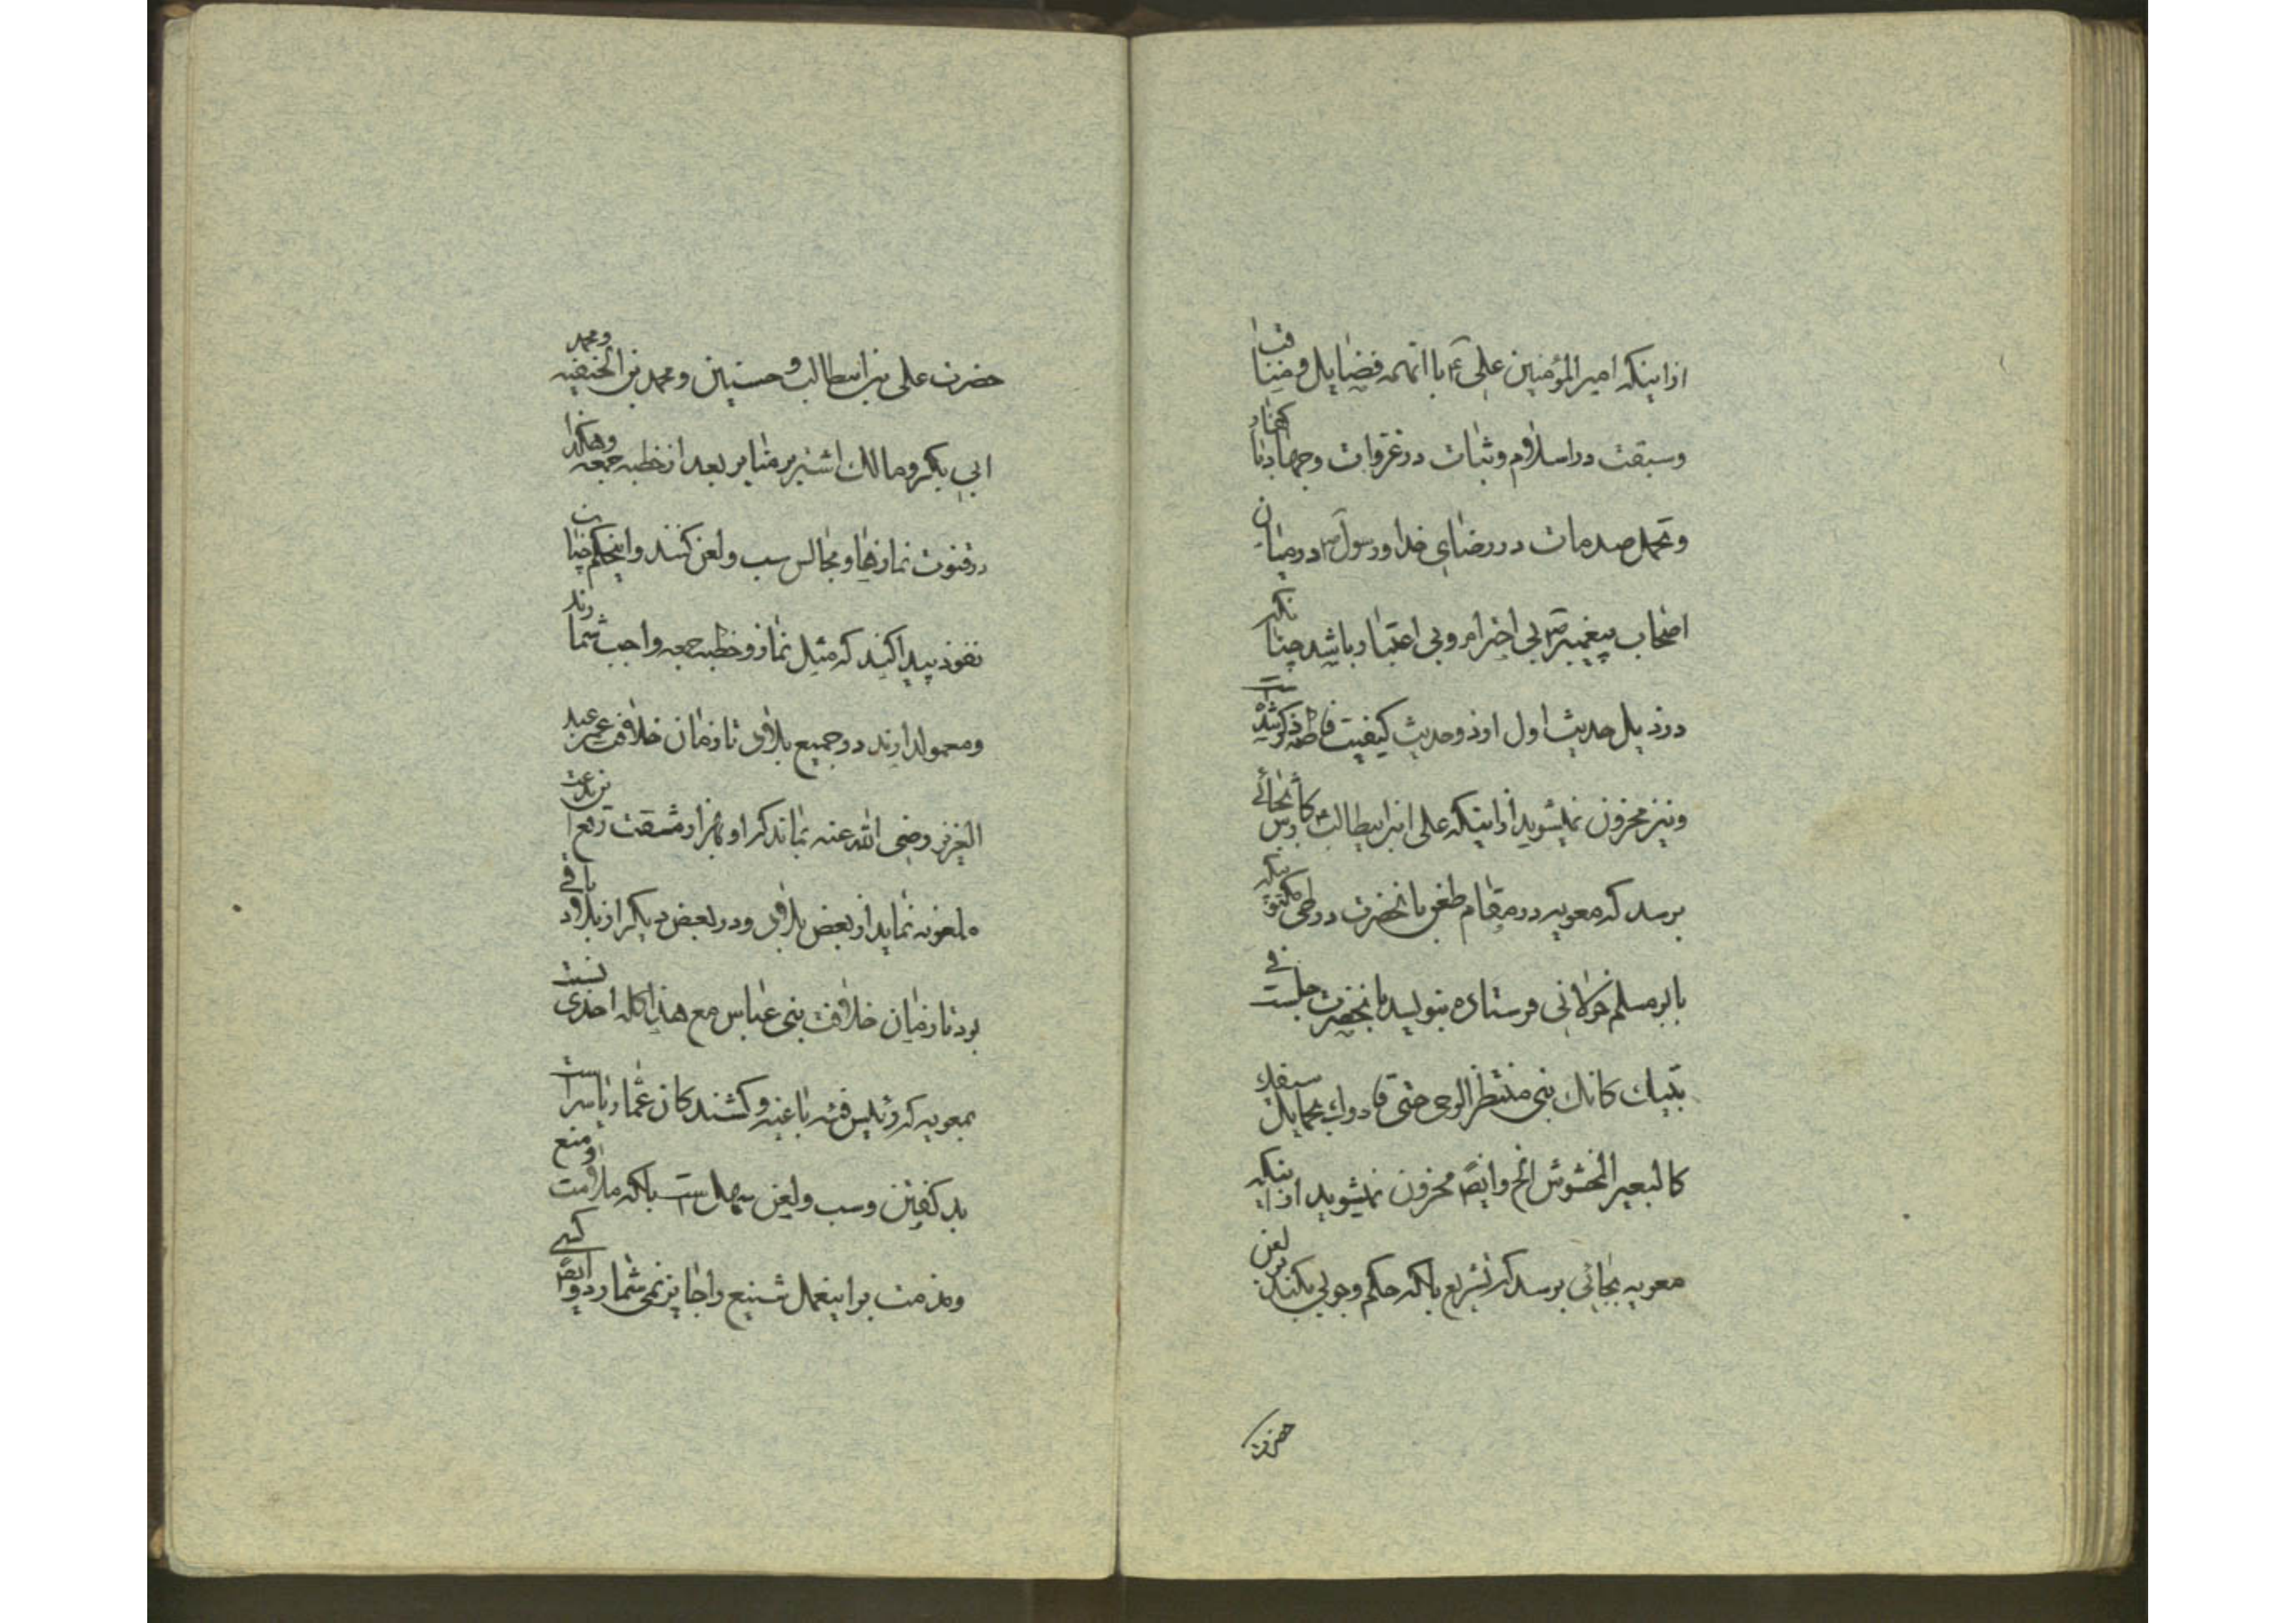 ازاینکه امیرالمؤمنین علی ع با انهمه فضایل و مناقب
و سبقت در اسلام و ثبات در غزوات و جهاد با کفار
و تحمل صدمات در رضای خدا و رسول ص در میان
اصحاب پیغمبر ص بی احترام و بی اعتبار باشد چنانکه
در ذیل حدیث اول اوذ و حدیث کیفیت فاطمه ذکر شده است
و نیز محزون نمیشوید ازاینکه علی ابن ابیطالب ع کارش بجائے
برسد که معویه در مقام طغو بانحضرت در طی مکتوبیکه
بابو مسلم خولانی فرستاده بنویسد بانحضرت جلست فے
بیتک کانک بنی منتظر الوحی حتی قادوک بحمایل سیفک
کالبعیر المخشوش الخ و ایضا محزون نمیشوید ازاینکه
معویه بجائی برسد که تشریع بلکه حکم وجوبی بکند بر لعن
حضرت
حضرت علی بن ابیطالب و حسنین و محمد بن الحنفیه و محمد
ابی بکر و مالک اشتر بر منابر بعد از خطبه جمعه و هکذا
در قنوت نمازها و مجالس سب و لعن کنند و اینحکم چنان
نفوذ پیدا کند که مثل نماز و خطبه جمعه واجب شمارند
و معمول دارند در جمیع بلاد تا زمان خلافت عمر بن عبد
العزیز رضی الله عنه بماند که او بهزار مشقت رفع این بدعت
ملعونه نماید از بعض بلاد و در بعض دیگر از بلاد باقے
بود تا زمان خلافت بنی عباس مع هذا کله احدی نسبت
بمعویه که رئیس فئه باغیه و کشندگان عمار یاسر است
بد گفتن و سب و لعن سهل است بلکه ملامت و منع
و مذمت بر اینعمل شنیع را جایز نمی شمارد و ایضا کسے